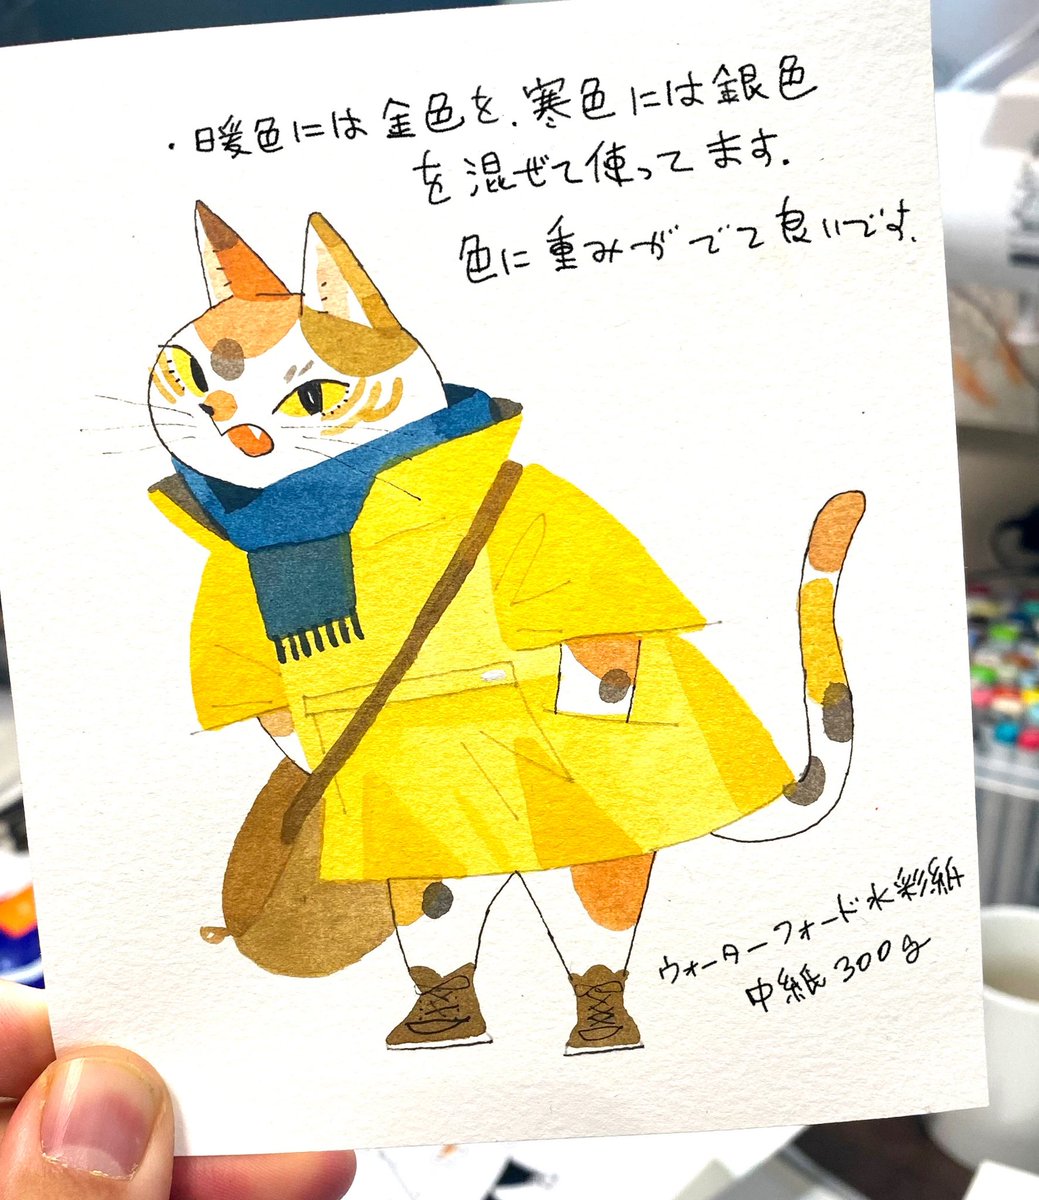 ・暖色には金色を、寒色には銀色
を混ぜて使ってます.
色に重みがでて良いです.
ウォーターフォード水彩紙
中紙300g